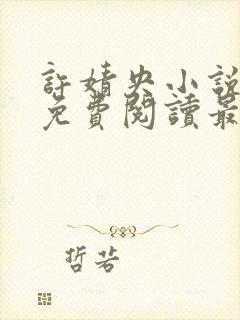 許婧央小說
免費閱讀最
哲若